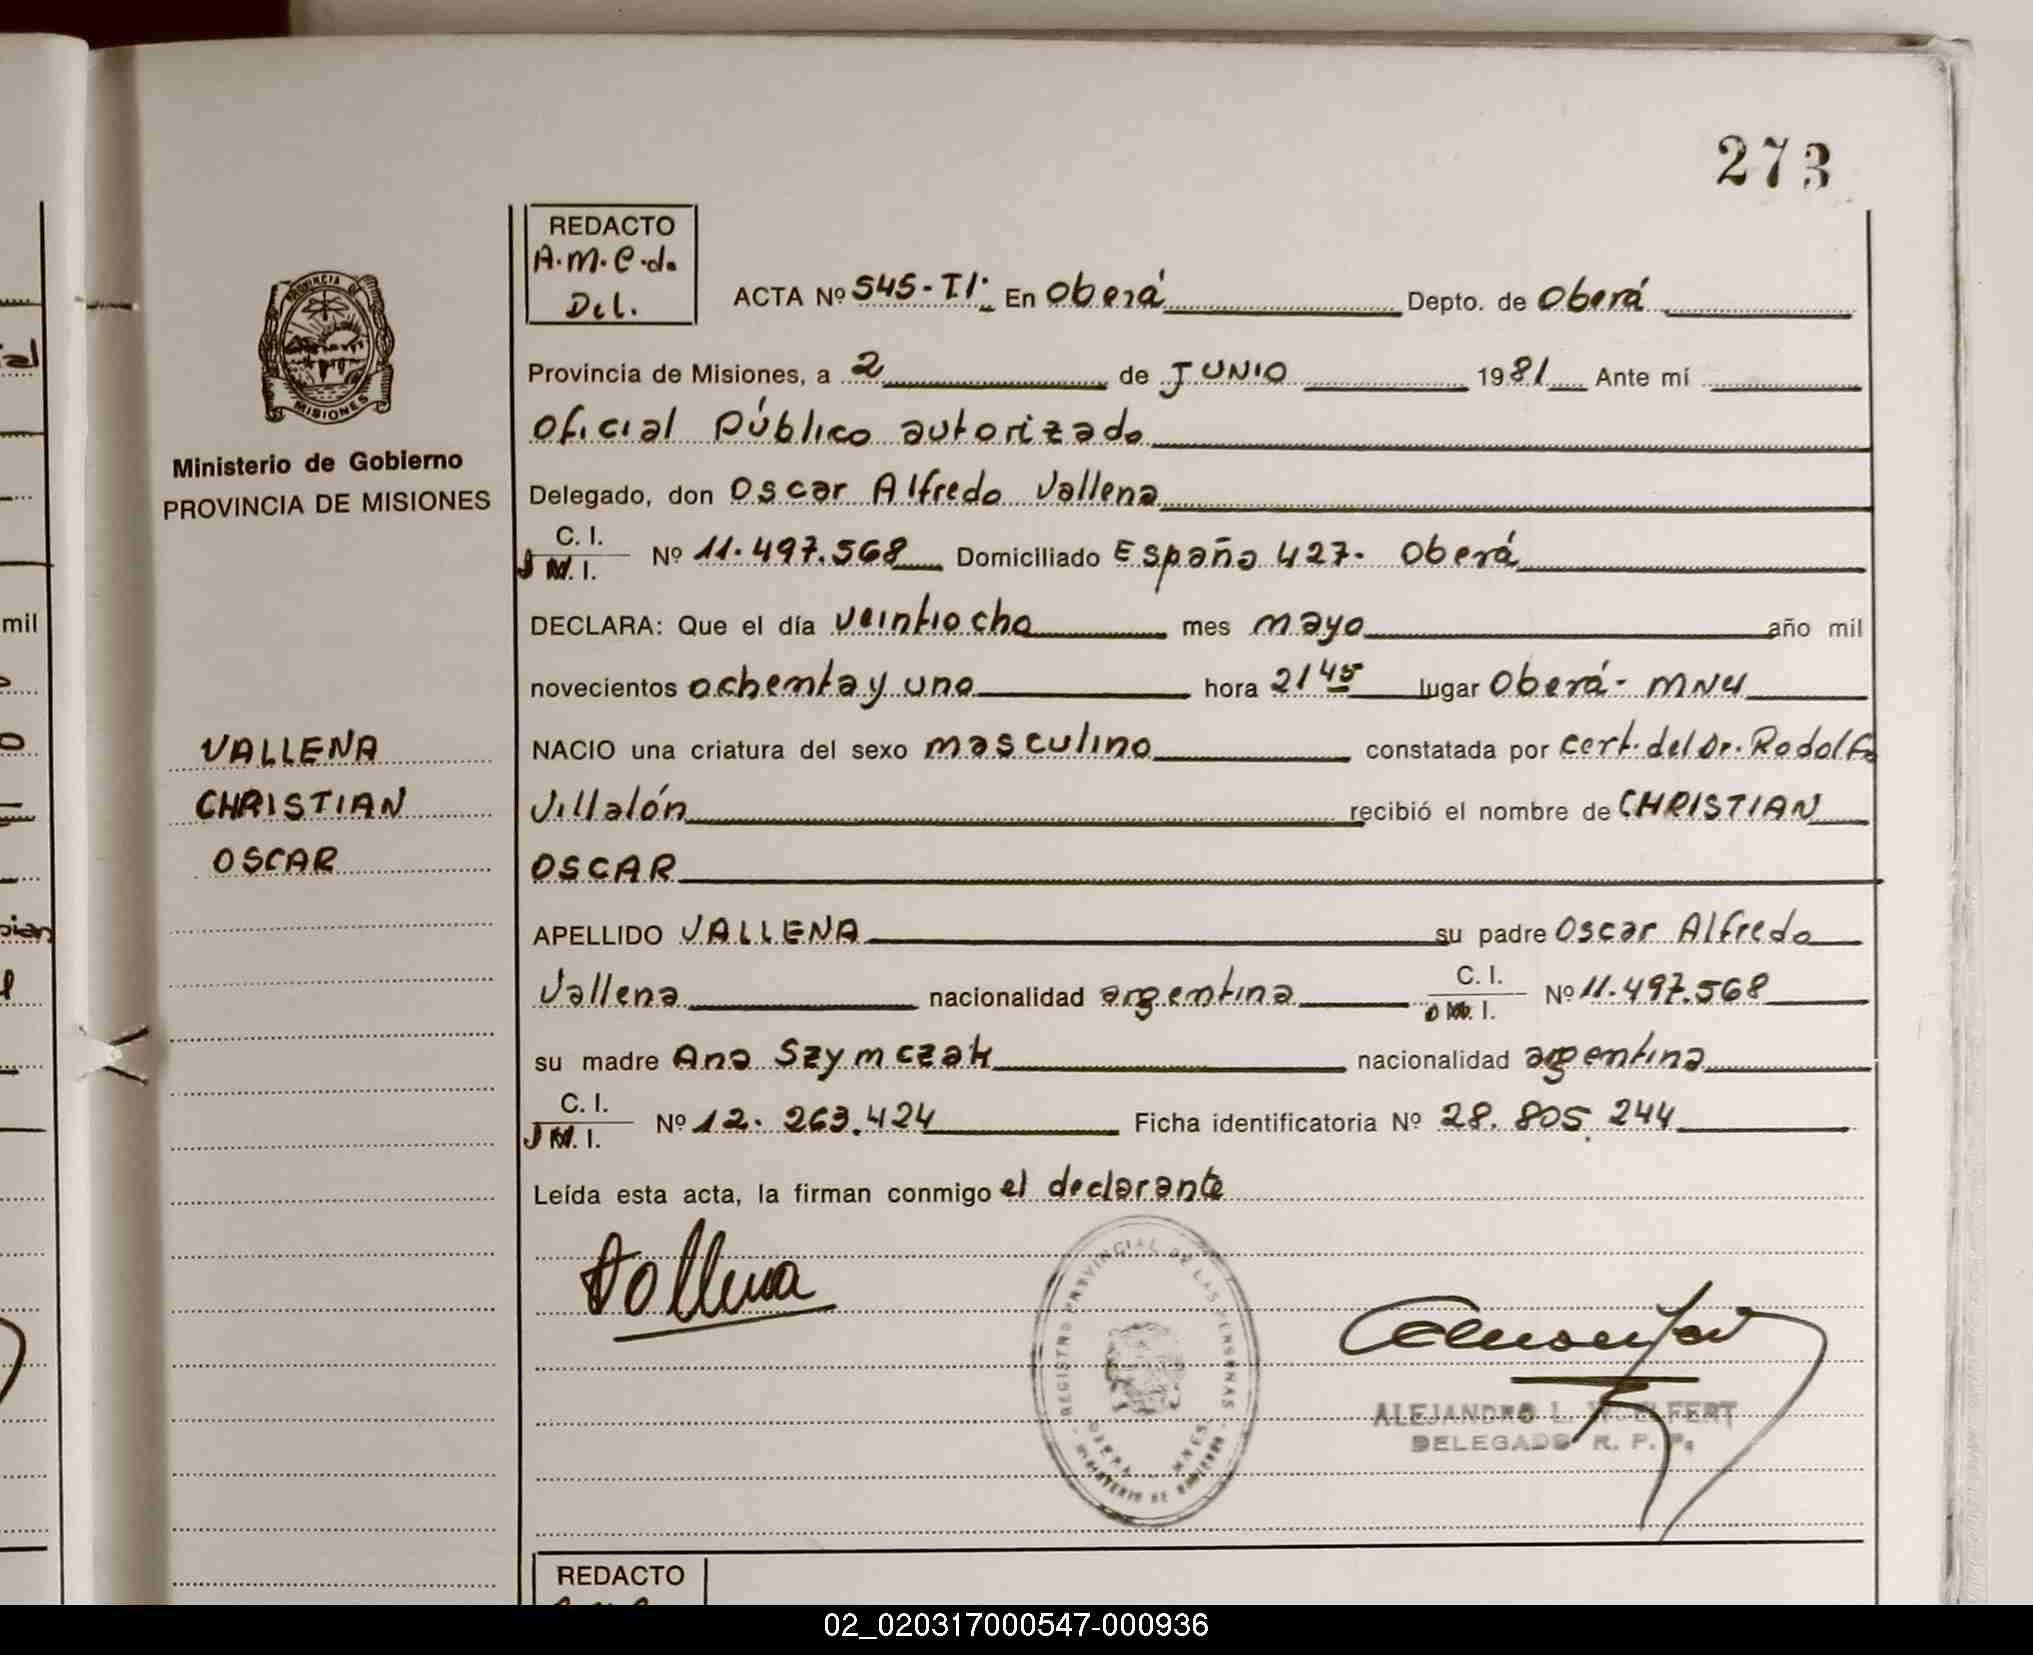 273
REDACTO
A.M.C.d.
Del.
ACTA Nº 545-TI: En Oberá Depto. de Oberá
Provincia de Misiones, a 2 de JUNIO 1981 Ante mí
Oficial Público autorizado
PROVINCIA DE
MISIONES
Ministerio de Gobierno
PROVINCIA DE MISIONES
Delegado, don Oscar Alfredo Vallena
C. I.
D M. I. Nº 11.497.568 Domiciliado España 427- Oberá
DECLARA: Que el día veintiocho mes mayo año mil
novecientos ochenta y uno hora 21 45 lugar Oberá- MNES
VALLENA
CHRISTIAN
OSCAR
NACIO una criatura del sexo masculino constatada por cert. del Dr. Rodolfo
Villalón recibió el nombre de CHRISTIAN
OSCAR
APELLIDO VALLENA su padre Oscar Alfredo
Vallena nacionalidad argentina C. I. D M. I. Nº 11.497.568
su madre Ana Szymczak nacionalidad argentina
C. I.
D M. I. Nº 12.263.424 Ficha identificatoria Nº 28.805.244
Leída esta acta, la firman conmigo el declarante
Vallena
REGISTRO PROVINCIAL DE LAS PERSONAS
OBERA - MNES
MINISTERIO DE GOBIERNO
ALEJANDRO L. WOLFERT
DELEGADO R. P. P.
REDACTO
mil
02_020317000547-000936